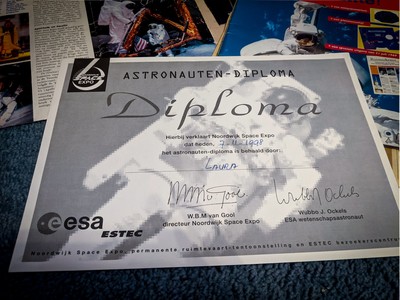 SPACE
EXPO
ASTRONAUTEN-DIPLOMA
Diploma
Hierbij verklaart Noordwijk Space Expo
dat heden, 7-11-1998
het astronauten-diploma is behaald door:
LAURA
W.B.M van Gool
directeur Noordwijk Space Expo
Wubbo J. Ockels
ESA-wetenschapsastronaut
esa
ESTEC
Noordwijk Space Expo, permanente ruimtevaarttentoonstelling en ESTEC bezoekerscentrum